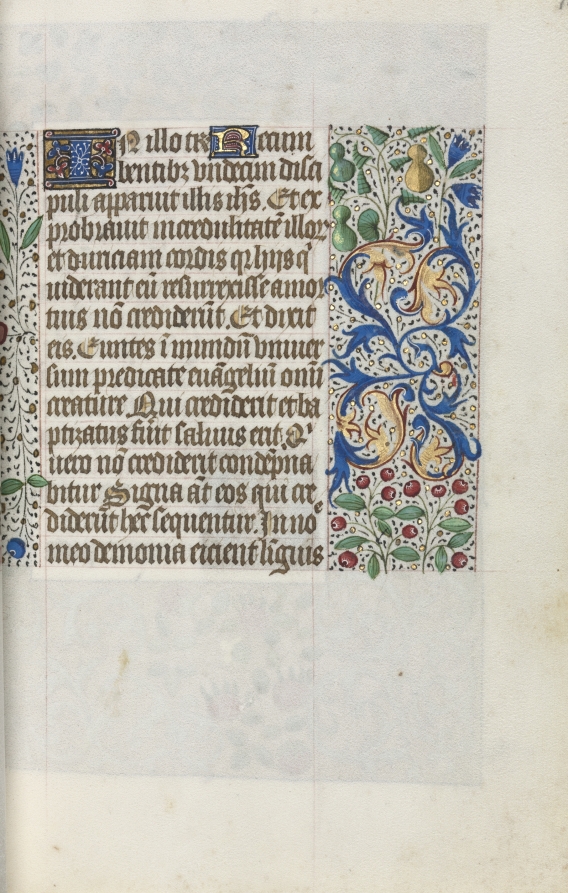 IN illo tꝑe Recum
bentibꝫ vndecim disci
puli apparuit illis ih̄s. Et ex
probrauit incredulitatē illoꝝ
et duriciam cordis qꝛ hijs q̄
uiderant eū resurrexisse a mor
tuis nō credider̄ūt. Et dixit
eis. Euntes ī mundū vniuer
sum predicate euāgeliū om̄i
creature. Qui crediderit et ba
ptizatus fūit saluus erit. Qꝰ
uero nō crediderit condēpna
bitur. Signa aūt eos qui cre
diderūt hec sequentur. In no
meo demonia eicient liguis